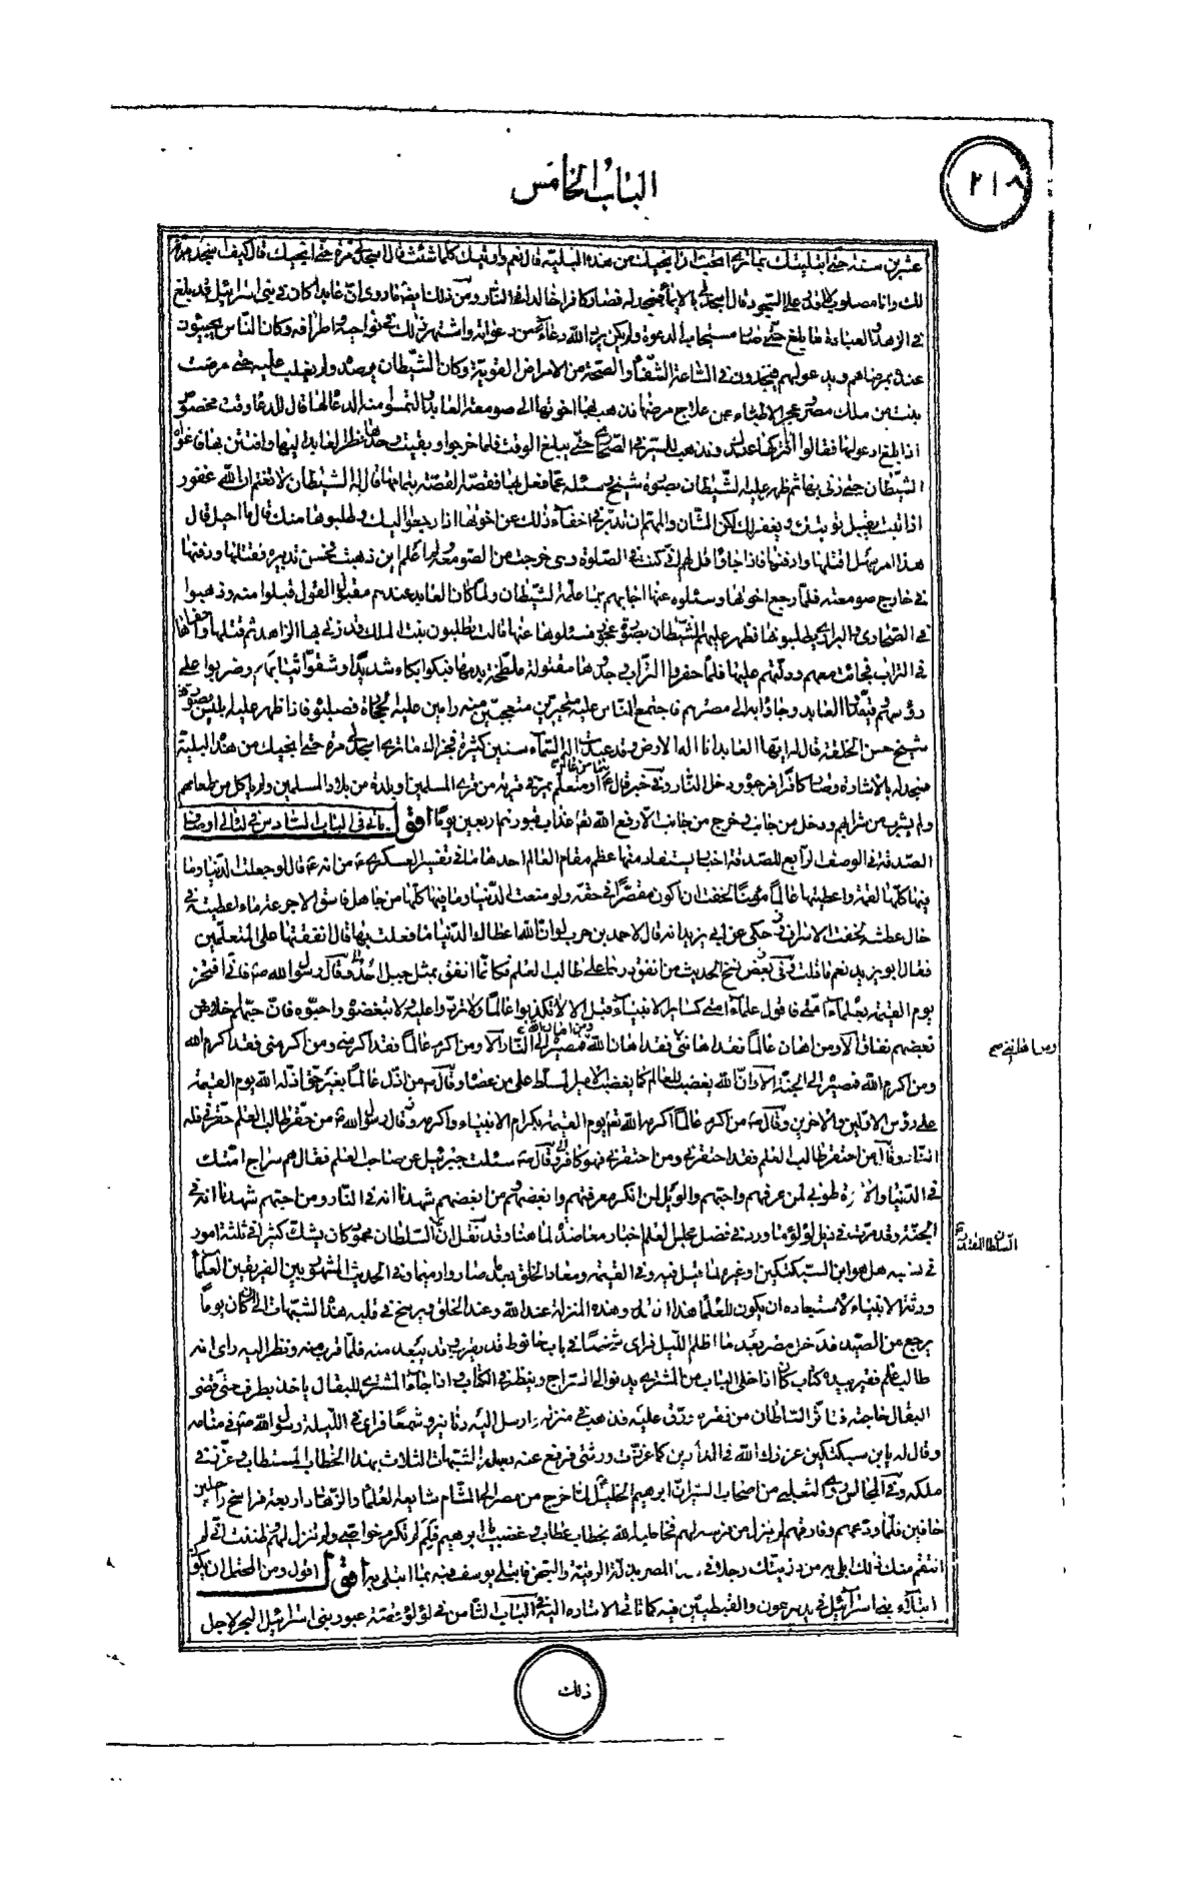 ٢١٨
الباب الخامس
عشرين سنة حتى ابتليتك بما ترى اتحب ان انجيك من هذه البلية قال نعم واتيك كلما شئت قال اسجد لى مرة حتى انجيك قال كيف اسجد مرة
لك وانا مصلوب لا اقدر على السجود قال اسجد لى بالايماء فسجد له فصار كافرا خالدا فى النار ومن ذلك ايضا ما روى ان عابدا كان فى بنى اسرائيل قد بلغ
فى الزهد العبادة ما بلغ حتى صار مستجاب الدعوة ولم يكن يرد الله دعاءه من دعواته واشتهر ذلك فى نواحيه واطرافه وكان الناس يجيئون
عنده بمرضاهم ويدعو لهم فيجدون فى الساعة الشفاء والصحة من الامراض القوية وكان الشيطان يرصده ولم يغلب عليه حتى مرضت
بنت من ملك مصره عجز الاطباء عن علاج مرضها فذهب بها اخوتها الى صومعة العابد والتمسوا منه الدعاء لها قال للدعاء وقت مخصوص
اذا بلغ ادعو لها فقالوا انتركها عندك ونذهب للسير فى الصحارى حتى يبلغ الوقت فلما خرجوا وبقيت وحدها نظر العابد اليها وافتتن بها فاغواه
الشيطان حتى زنى بها ثم ظهر عليه الشيطان بصورة شيخ يسئله عما فعل بها فقصه القصة بتمامها قال له الشيطان لا تغتم ان الله غفور
اذا تبت يقبل توبتك ويغفر لك لكن الشان والمهم ان تدبر فى اخفاء ذلك عن اخوتها اذا رجعوا اليك ويطلبوها منك قال ما احيل قال
هذا امر سهل اقتلها وادفنها فاذا جاؤا قل لهم انى كنت فى الصلوة وهى خرجت من الصومعة ولم اعلم اين ذهبت فحسن تدبيره فقتلها ودفنها
فى خارج صومعته فلما رجع اخوتها وسئلوه عنها اجابهم بما علمه الشيطان ولما كان العابد عندهم مقبول القول قبلوا منه وذهبوا
فى الصحارى والبرارى يطلبونها فظهر عليهم الشيطان بصورة عجوز فسئلوها عنها قالت تطلبون بنت الملك قد زنى بها الزاهد ثم قتلها واخفاها
فى التراب فجائت معهم ودلتهم عليها فلما حفروا التراب وجدوها مقتولة ملطخة بدمها فبكوا بكاء شديدا وشقوا ثيابهم وضربوا على
رؤسهم فقيدوا العابد وجاؤا به الى مصرهم فاجتمع الناس عليه متحيرين متعجبين منه رامين عليه فصلبوه فاذا ظهر عليه ابليس بصورة
شيخ حسن الخلقة قال له ايها العابد انا اله الارض وقد عبدت اله السماء سنين كثيرة فجزاك ما ترى اسجد لى مرة حتى انجيك من هذه البلية
فسجد له بالاشارة وصار كافرا فرجموه ودخل النار وفى خبر قال ما من عالم او متعلم يمر فى قرية من قرى المسلمين او بلدة من بلاد المسلمين ولم ياكل من طعامهم
ولم يشرب من شرابهم ودخل من جانب وخرج من جانب الا رفع الله تعالى عذاب قبورهم اربعين يوما اقول ياتى فى الباب السادس فى
الصدقة فى الوصف الرابع للصدقة اخبار يستفاد منها عظم مقام العالم احدها ما فى تفسير العسكرى من انه قال لو جعلت الدنيا وما
فيها كلها لقمة واعطيتها عالما مؤمنا لخفت ان اكون مقصرا فى حقه ولو منعت الدنيا وما فيها كلها من جاهل فاسق الا جرعة ماء اعطيته فى
حال عطشه لخفت الاسراف حكى عن ابى يزيد انه قال لاحمد بن حرب لو ان الله اعطاك الدنيا ما فعلت بها قال انفقتها على المتعلمين
فقال ابو يزيد نعم ما قلت وفى بعض نسخ الحديث من انفق درهما على طالب العلم فكانما انفق بمثل جبل احد وقال رسول الله ص فانى افتخر
يوم القيمة بعلماء امتى فاقول علماء امتى كسائر الانبياء قبلى الا لا تكذبوا عالما ولا تردوا عليه ولا تبغضوه واحبوه فان حبهم اخلاص
وبغضهم نفاق الا ومن اهان عالما فقد اهاننى ومن اهاننى فقد اهان الله ومن اهان الله فمصيره الى النار الا ومن اكرم عالما فقد اكرمنى ومن اكرمنى فقد اكرم الله
ومن اكرم الله فمصيره الى الجنة الا وان الله يغضب للعالم كما يغضب الامير المسلط على من عصاه وقال من اذل عالما بغير حق اذله الله يوم القيمة
على رؤس الاولين والاخرين وقال من اكرم عالما اكرمه الله تعالى يوم القيمة بكرام الانبياء واكرمه وقال رسول الله ص من حقر طالب العلم حقرنى فله
النار وقال من احتقر طالب العلم فقد احتقرنى ومن احتقرنى فهو كافر وقال سئلت جبرئيل عن صاحب العلم فقال هم سراج امتك
فى الدنيا والاخرة طوبى لمن عرفهم واحبهم والويل لمن انكر معرفتهم وابغضهم من ابغضهم شهدنا انه فى النار ومن احبهم شهدنا انه فى
الجنة وقد مرت فى ذيل لؤلؤ ما ورد فى فضل مجلس العلم اخبار معاضدة لما هنا وقد نقل ان السلطان محمود كان يشك كثيرا فى ثلثة امور
فى نسبه هل هو ابن السبكتكين او غيره لما قيل فيه وفى القيمة ومعاد الخلق فيها وفى الحديث المشهور بين الفريقين العلماء
ورثة الانبياء لاستبعاده ان يكون للعلماء هذا وهذه المنزلة عند الله وعند الخلق فى قلبه هذه الشبهات الى ان كان يوما
يرجع من الصيد فدخل مصره بعد ما اظلم الليل فراى شخصا فى باب حانوط قد يقرب قد يبعد منه فلما قرب منه ونظر اليه راى انه
طالب علم فقير بيده كتاب كان اذا خلى الباب من المشترى يدنو الى السراج وينظر فى الكتاب واذا جاء المشترى للبقال ياخذ بطرف حتى قضى
البقال حاجته فتاثر السلطان من فقره ورق عليه فذهب فى منزله وارسل اليه دنانير وشمعا فراى فى الليلة رسول الله ص فى منامه
وقال له يا ابن سبكتكين عزك الله فى الدارين كما عززت ورثتى فرفع عنه الشبهات الثلاث بهذا الخطاب المستطاب عززت فى
ملكه وفى المجالس روى الثعلبى من اصحاب السير ان ابرهيم الخليل لما خرج من مصر الى الشام شايعه العلماء والزهاد اربعة فراسخ راجلين
حافين فلما ودعهم وفارقهم لم ينزل من فرسه لهم فخاطبه الله بخطاب عتاب وغضب يا ابرهيم لم تكرم خواصى ولم تنزل لهم ظننت انى لم
انتقم منك ذلك ابلى من ذريتك رجلا فى المصر بذلة الرقية والسجن فابتلى يوسف فيه بما ابتلى به اقول ومن المحتمل ان يكون
ابتلاء بنى اسرائيل فى يد فرعون والقبطيين فيه كما تاتى الاشارة اليه فى الباب الثامن فى لؤلؤ قصة عبور بنى اسرائيل البحر لاجل
ومن اهاننى صح
ذلك